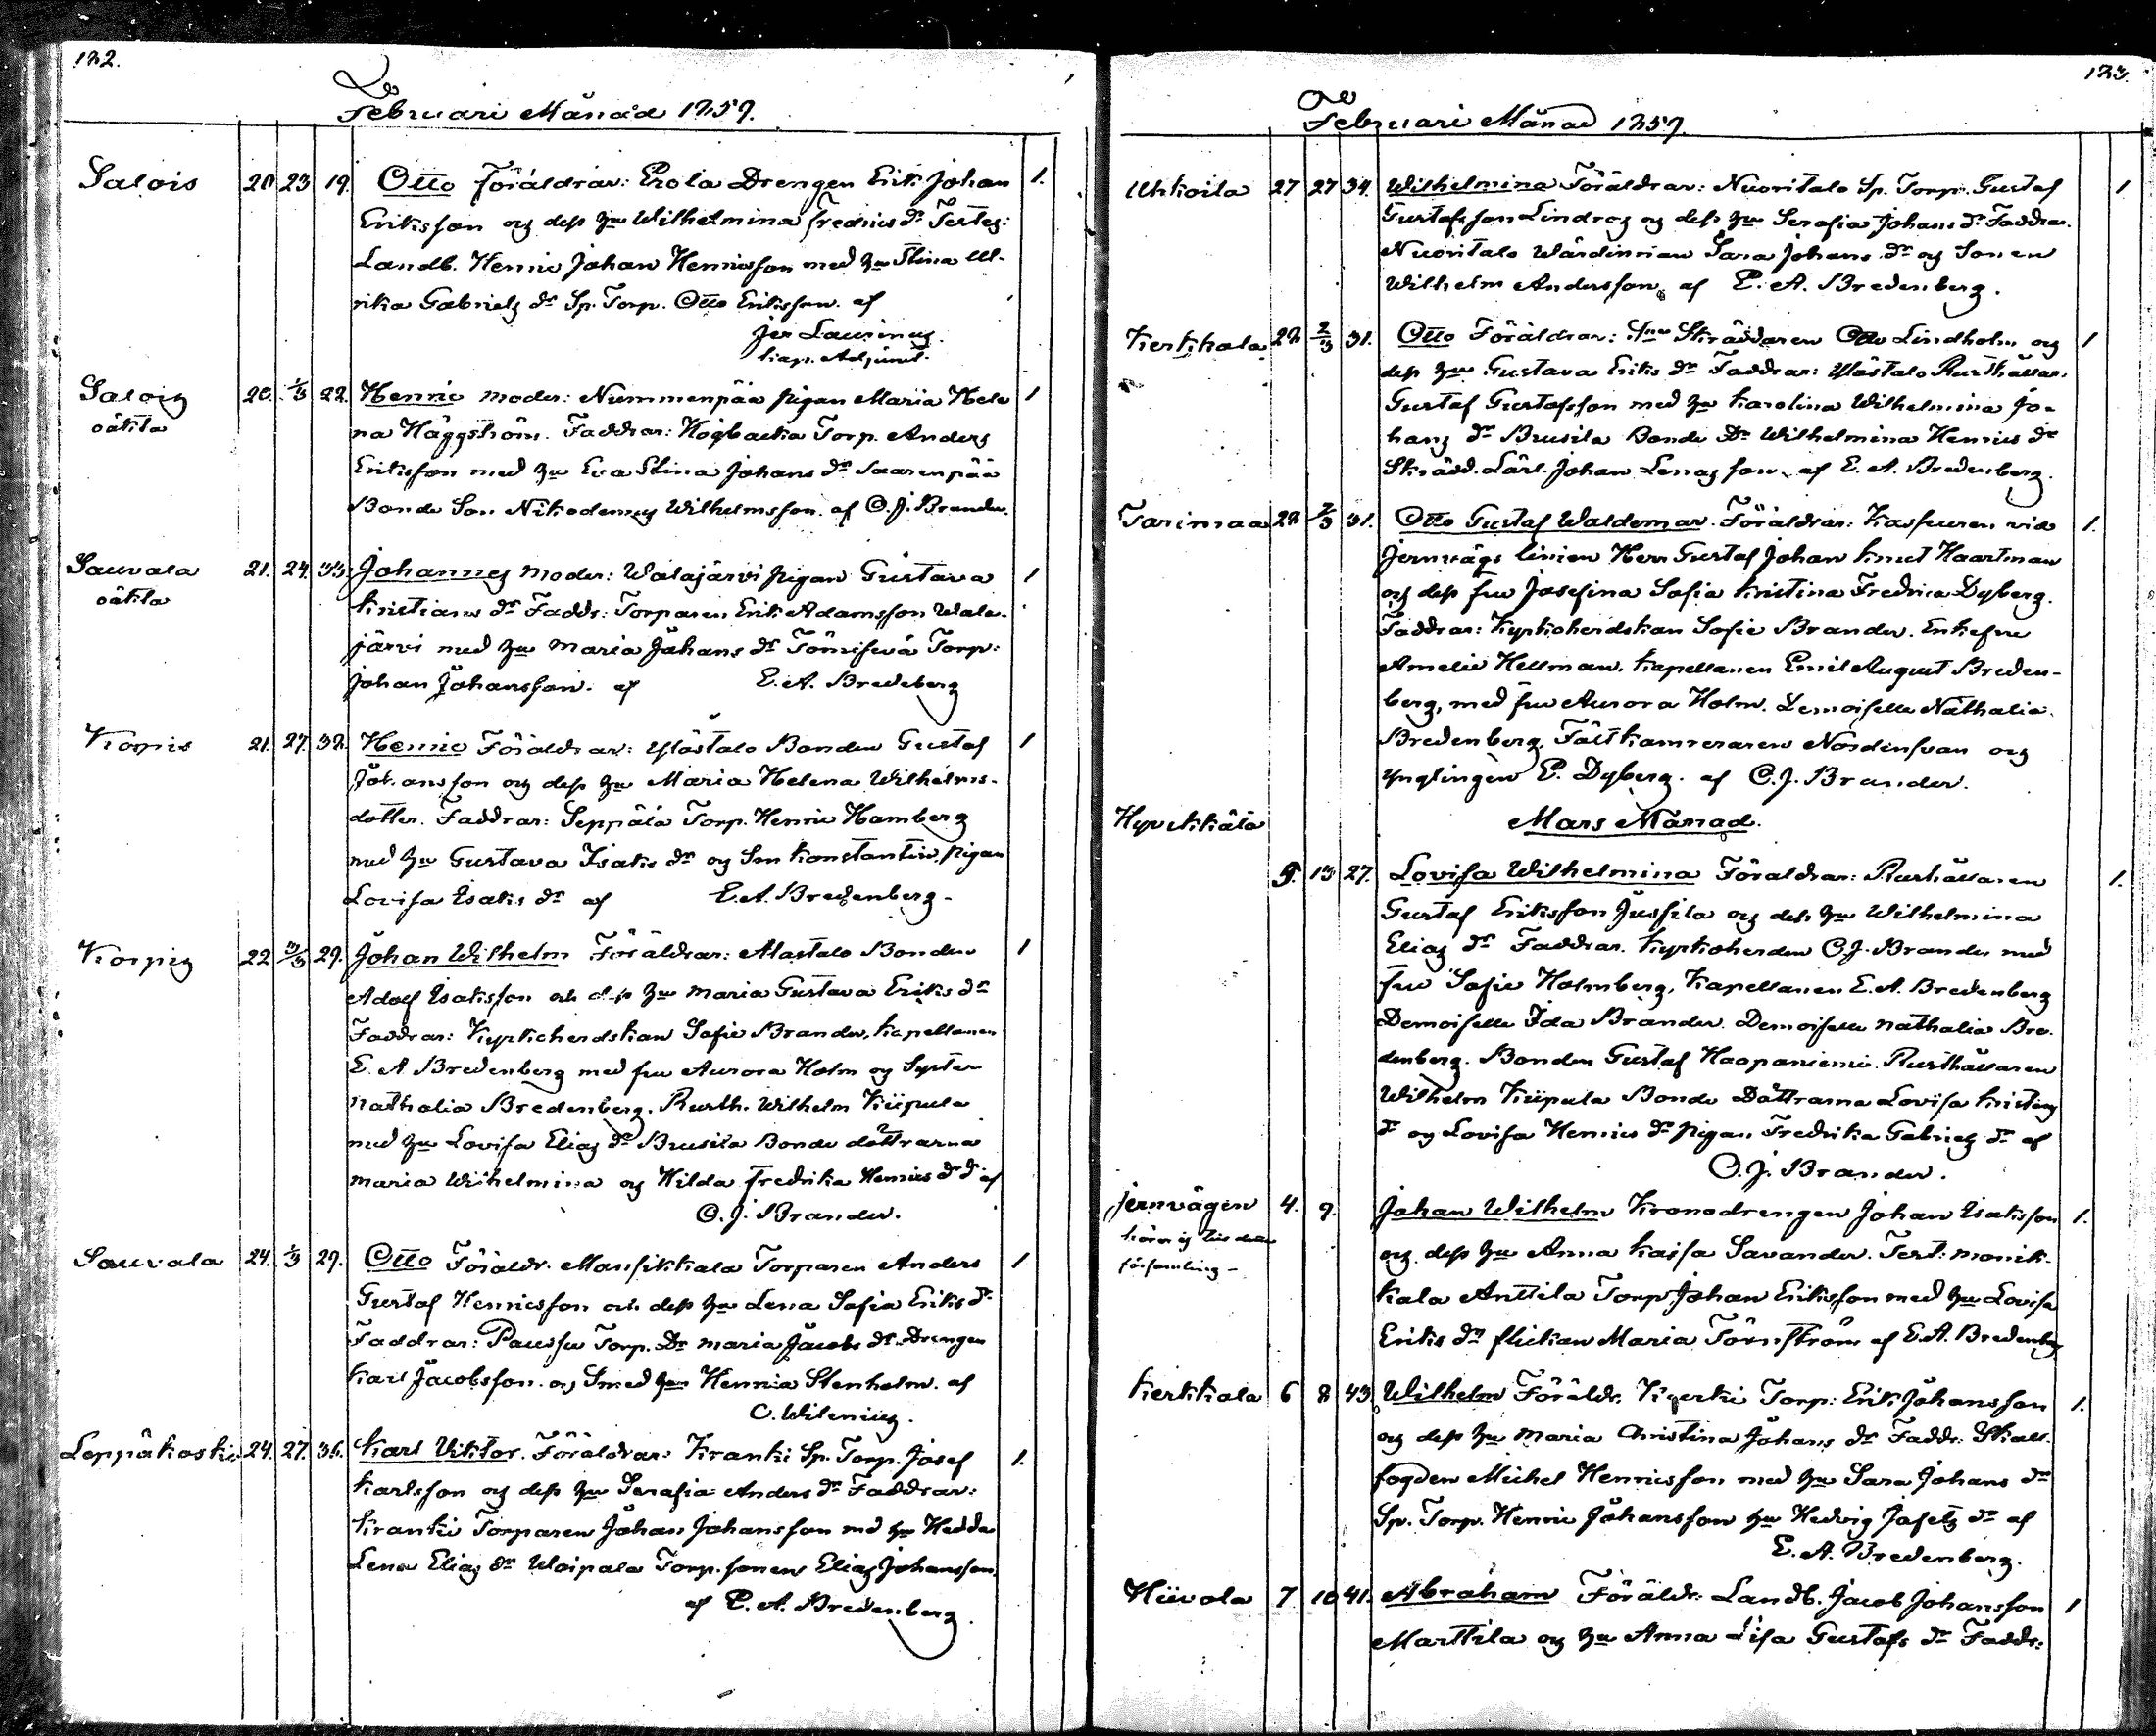 122.
Februari Månad 1859.
Salois 20 23 19. Otto Föräldrar: Erola Drengen Erik Johan 1.
Eriksson og dess hu Wilhelmina Fredrics dr Testes:
Landb. Henric Johan Henricsson med hu Stina Ul-
rika Gabriels dr Sp. Torp. Otto Eriksson. af
Jer Laurinus.
Kap. Adjunct.
Salois 20. 1/3 22. Henric Moder: Nummenpää pigan Maria Hele 1
oäkta na Häggström. Faddrar: Högbacka Torp. Anders
Eriksson med hu Eva Stina Johans dr Saarenpää
Bonde Son Nikodemus Wilhelmsson. af C. J. Brander.
Sauvala 21. 24. 33. Johannes Moder: Walajärvi pigan Gustava 1
oäkta Kristians dr Fadds: Torparen Erik Adamsson Wala-
järvi med hu Maria Johans dr Torp:
Johan Johansson. af E. A. Bredeberg
Korpis 21. 27. 32. Henric Föräldrar: Ylästalo Bonden Gustaf 1
Johansson og dess hu Maria Helena Wilhelms-
dotter. Faddrar: Seppälä Torp. Henric Hamberg
med hu Gustava Isaks dr og Son Konstantin, pigan
Lovisa Isaks dr af E. A. Bredenberg.
Korpis 22 3/3 29. Johan Wilhelm Föräldrar: Alastalo Bonden 1
Adolf Isaksson och dess hu Maria Gustava Eriks dr
Faddrar: Kyrkoherdskan Sofie Brander, Kapellanen
E. A Bredenberg med fru Aurora Holm og Syster
Nathalia Bredenberg. Rusth. Wilhelm Kiipula
med hu Lovisa Elias dr Brusila Bonde döttrarna
Maria Wilhelmina og Hilda Fredrika Henrics dr dr af
C. J. Brander.
Sauvala 24. 1/3 29. Otto Föräldr. Mansikkala Torparen Anders 1
Gustaf Henricsson och dess hu Lena Sofia Eriks dr
Faddrar: Torp. Dr Maria Jacobs dr Drengen
Karl Jacobsson. og Smed hu Henrica Stenholm. af
C. Wilenius.
Loppäkoski 24. 27. 36. Karl Viktor. Föräldrar: Kranki Sp. Torp. Josef 1.
Karlsson og dess hu Serafia Anders dr Faddrar:
Kranki Torparen Johan Johansson med hu Hedda
Lena Elias dr Uoipala Torp. sonen Elias Johansson.
af E. A. Bredenberg.
123.
Februari Månad 1859.
Uhkoila 27 27 34. Wilhelmina Föräldrar: Nuoritalo Sp. Torp. Gustaf 1
Gustafsson Lindros og dess hu Serafia Johans dr Faddrar.
Nuoritalo Wärdinnan Sara Johans dr og Sonen
Wilhelm Andersson, af E. A. Bredenberg.
Kerkkala 28 2/3 31. Otto Föräldrar: Skräddaren Otto Lindholm og 1
dess hu Gustava Eriks dr Faddrar: Ylästalo Rusthållar.
Gustaf Gustafsson med hu Karolina Wilhelmina Jo-
hans dr Brusila Bonde Dr Wilhelmina Henrics dr
Skrädd. Lärl. Johan Lenasson. af E. A. Bredenberg.
Tarimaa 28. 2/3 31. Otto Gustaf Waldemar. Föräldrar: Kassören vid 1.
Jernvägs linien Herr Gustaf Johan Knut Haartman
og dess fru Josefina Sofia Kristina Fredrica Dyberg.
Faddrar: Kyrkoherdskan Sofie Brander. Enkefru
Amelie Hellman. Kapellanen Emil August Breden-
berg, med fru Aurora Holm. Demoiselle Nathalia
Bredenberg, Fält kamreraren Nordensvan og
ynglingen E. Dyberg. af C. J. Brander.
Mars Månad.
Hyvikkälä
5. 13 27. Lovisa Wilhelmina Föräldrar: Rusthållaren 1.
Gustaf Eriksson Jussila og dess hu Wilhelmina
Elias dr Faddrar. Kyrkoherden C. J. Brander med
fru Sofie Holmberg, Kapellanen E. A. Bredenberg
Demoiselle Ida Brander. Demoiselle Nathalia Bre-
denberg. Bonden Gustaf Haapaniemi. Rusthållaren
Wilhelm Kiipula Bonde Döttrarna Lovisa Kristins
dr og Lovisa Henrics dr pigan Fredrika Gabriels dr af
C. J. Brander.
Jernvägen 4. 9. Johan Wilhelm Kronodrengen Johan Isaksson 1.
hörer ej till denna og dess hu Anna Kaisa Savander. Test: Monik-
församling - kala Anttila Torp Johan Eriksson med hu Lovisa
Eriks dr flickan Maria Törnström af E. A. Bredenberg
Kerkkala 6 8 43. Wilhelm Föräldr. Torp: Erik Johansson 1.
og dess hu Maria Christina Johans dr Fadds: Skall-
fogden Michel Henricsson med hu Sara Johans dr
Sp. Torp. Henric Johansson hu Hedvig Josefs dr af
E. A. Bredenberg.
Hiivola 7 10 41. Abraham Föräldr: Landb. Jacob Johansson 1
Marttila og hu Anna Lisa Gustafs dr Fadds: